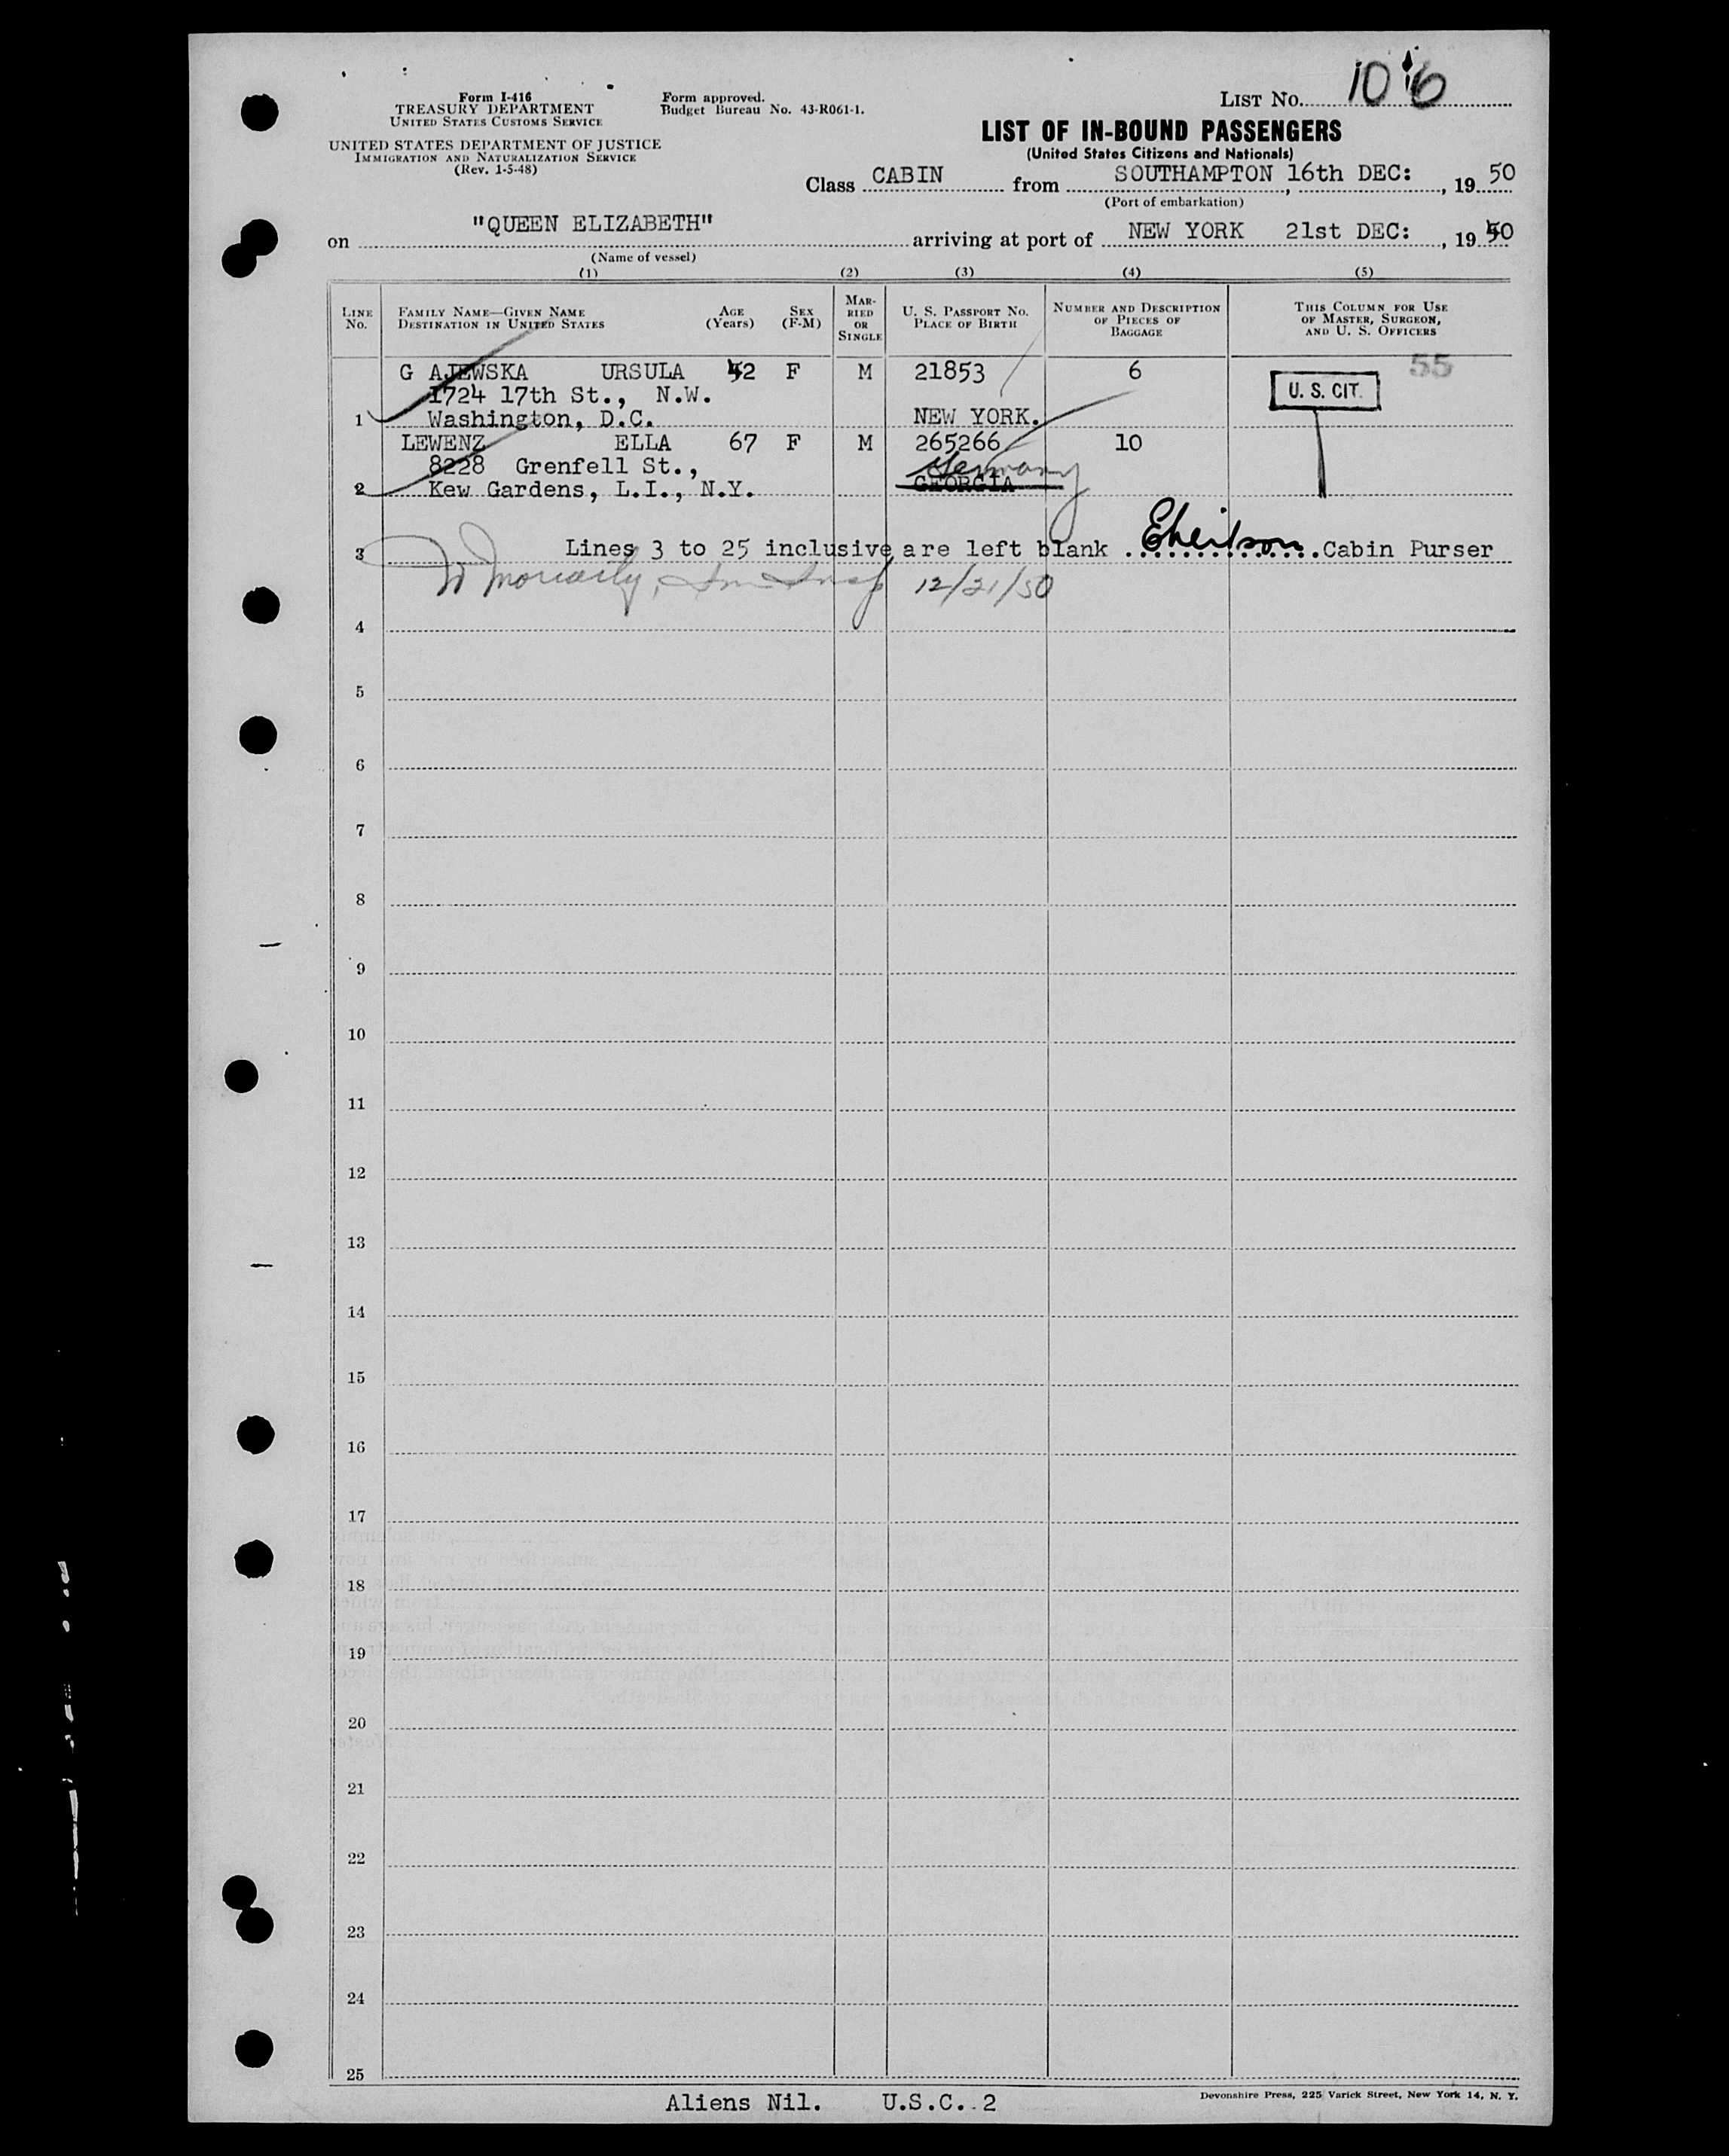 Form I-416
TREASURY DEPARTMENT
UNITED STATES CUSTOMS SERVICE
UNITED STATES DEPARTMENT OF JUSTICE
IMMIGRATION AND NATURALIZATION SERVICE
(Rev. 1-5-48)
Form approved.
Budget Bureau No. 43-R061-1.
LIST No. 106
LIST OF IN-BOUND PASSENGERS
(United States Citizens and Nationals)
Class CABIN from SOUTHAMPTON 16th DEC: , 19 50
(Port of embarkation)
on "QUEEN ELIZABETH" arriving at port of NEW YORK 21st DEC: , 19 50
(Name of vessel)
(1) (2) (3) (4) (5)
LINE No. FAMILY NAME—GIVEN NAME DESTINATION IN UNITED STATES AGE (Years) SEX (F-M) MARRIED OR SINGLE U. S. PASSPORT NO. PLACE OF BIRTH NUMBER AND DESCRIPTION OF PIECES OF BAGGAGE THIS COLUMN FOR USE OF MASTER, SURGEON, AND U. S. OFFICERS
55
G AJEWSKA URSULA 42 F M 21853 6 U. S. CIT.
1724 17th St., N.W.
1 Washington, D.C. NEW YORK.
LEWENZ ELLA 67 F M 265266 10
8228 Grenfell St., Germany
2 Kew Gardens, L.I., N.Y. GEORGIA
3 Lines 3 to 25 inclusive are left blank Cabin Purser
12/21/50
4
5
6
7
8
9
10
11
12
13
14
15
16
17
18
19
20
21
22
23
24
25
Aliens Nil. U.S.C. 2
Devonshire Press, 225 Varick Street, New York 14, N. Y.